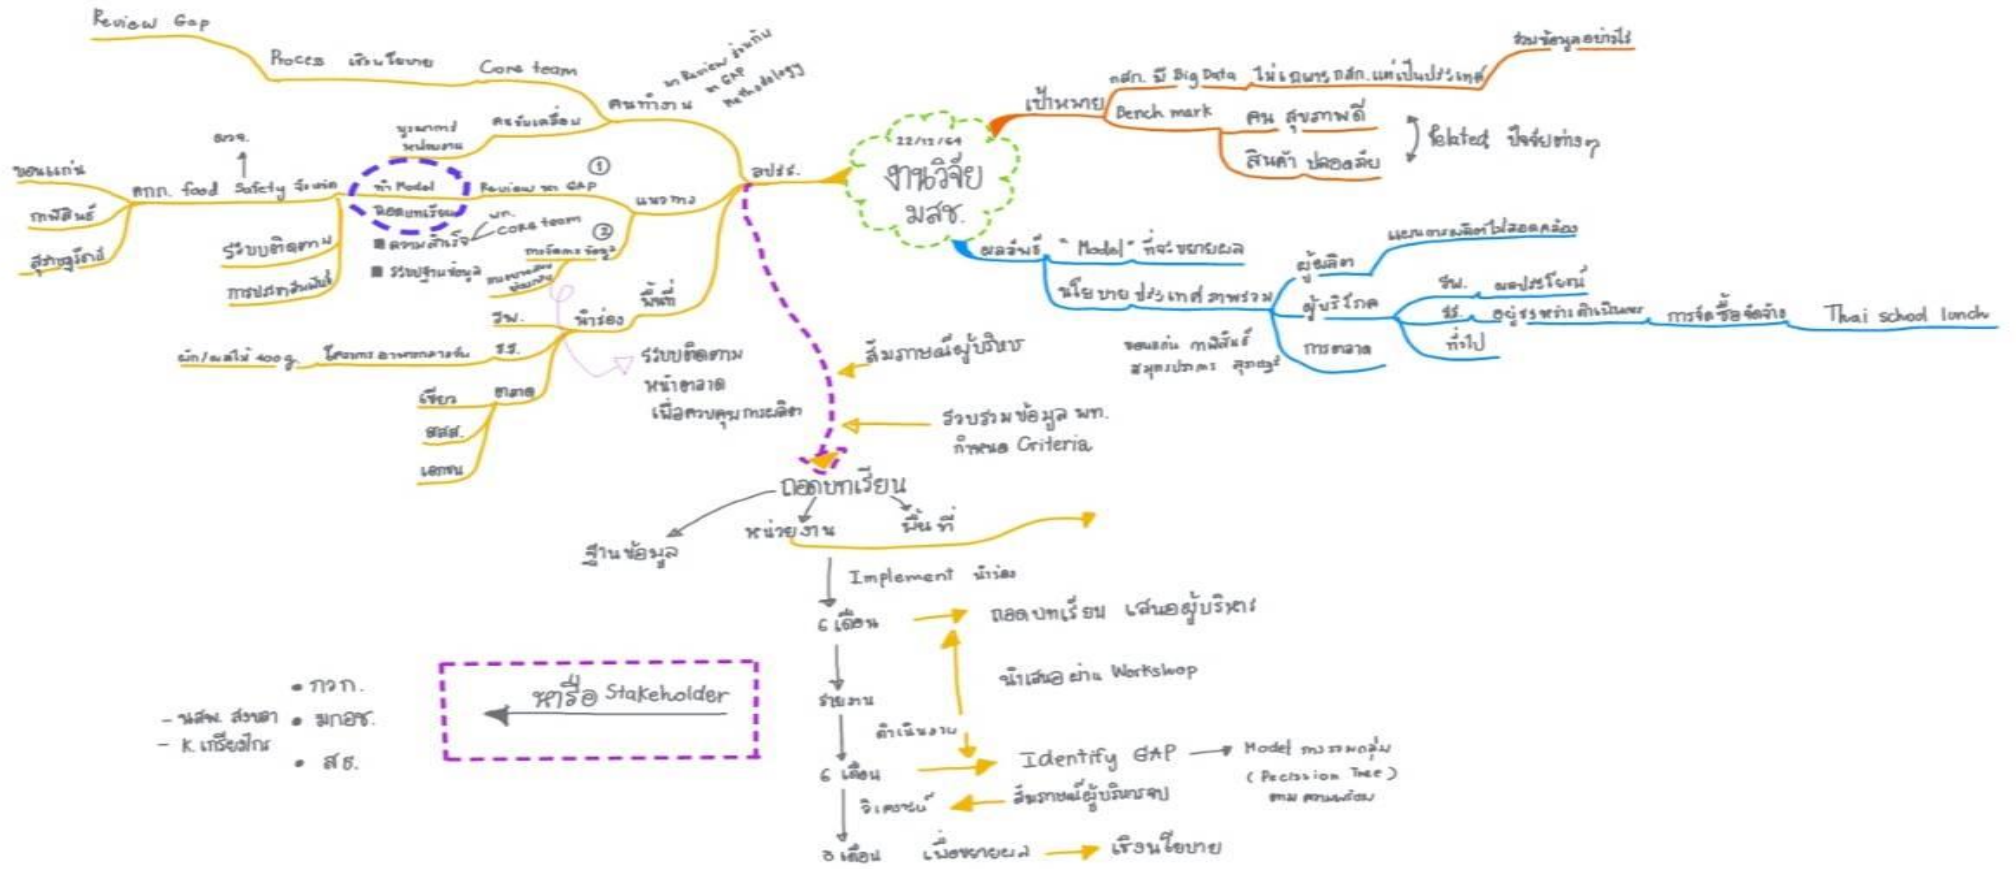 Review Gap
Proces เชิงนโยบาย
Core team
คนทำงาน
หา Review ร่วมกัน
หา GAP
Methodology
คนขับเคลื่อน
บูรณาการ
หน่วยงาน
อวจ.
ขอนแก่น
กาฬสินธุ์
สุราษฎร์ธานี
คกก. food Safety จังหวัด
ทำ Model
ถอดบทเรียน
Review หา GAP
①
แนวทาง
อปรร.
■ ความสำเร็จ
core team
②
การจัดการ ข้อมูล
■ ระบบฐานข้อมูล
ระบบติดตาม
การประชาสัมพันธ์
พื้นที่
นำร่อง
รพ.
รร.
โครงการ อาหารกลางวัน
ผัก/ผลไม้ 400 g.
ตลาด
เขียว
อสส.
เอกชน
ระบบติดตาม
หน้าตลาด
เพื่อควบคุมการผลิต
22/12/64
งานวิจัย
มสช.
เป้าหมาย
กสก. มี Big Data ไม่เฉพาะ กสก. แต่เป็นประเทศ
รวมข้อมูลอย่างไร
Bench mark
คน สุขภาพดี
สินค้า ปลอดภัย
Related ปัจจัยต่างๆ
ผลลัพธ์ "Model" ที่จะขยายผล
นโยบาย ประเทศ ภาพรวม
ผู้ผลิต
แผนการผลิตให้สอดคล้อง
ผู้บริโภค
รพ. ผลประโยชน์
รร. อยู่ระหว่างดำเนินการ การจัดซื้อจัดจ้าง Thai school lunch
ทั่วไป
การตลาด
ขอนแก่น กาฬสินธุ์
สมุทรปราการ สุราษฎร์
สัมภาษณ์ผู้บริหาร
รวบรวมข้อมูล พท.
กำหนด Criteria
ถอดบทเรียน
ฐานข้อมูล
หน่วยงาน
พื้นที่
Implement นำร่อง
6 เดือน
ถอดบทเรียน เสนอผู้บริหาร
นำเสนอผ่าน Workshop
รายงาน
ดำเนินงาน
6 เดือน
Identify GAP
Model การรวมกลุ่ม
(Decission Tree)
ตาม ความพร้อม
วิเคราะห์
3 เดือน เพื่อขยายผล
เชิงนโยบาย
หารือ Stakeholder
• กวก.
• มกอช.
• สธ.
- นสพ. สงขลา
- K. เกรียงไกร